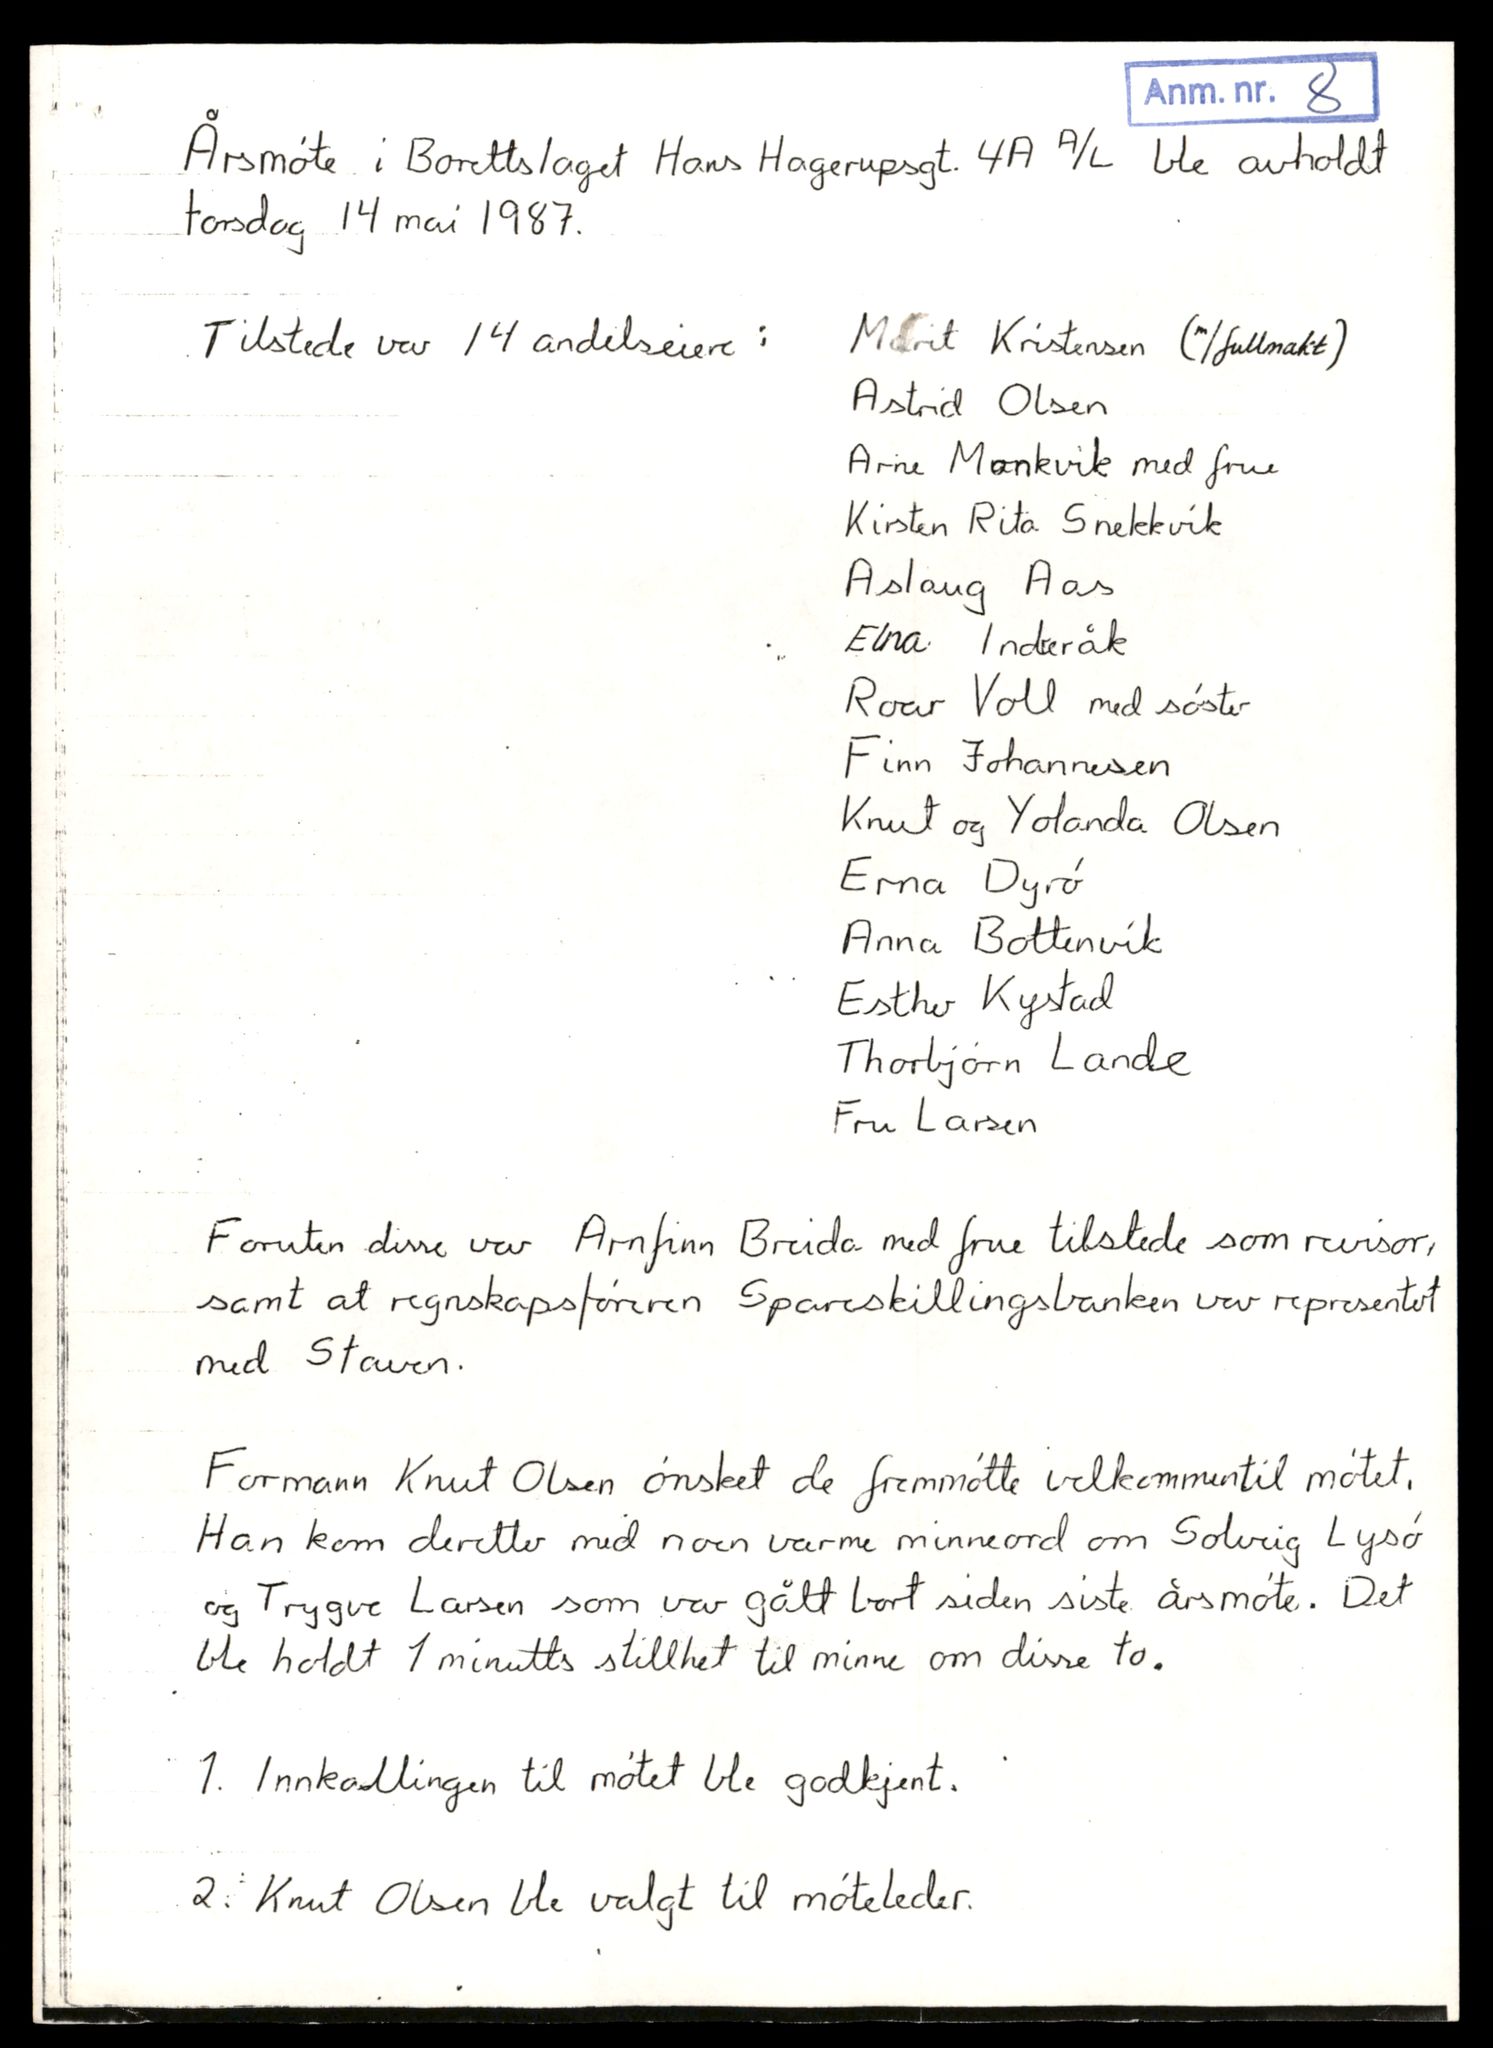 Anm. nr. 8
Årsmóte i Borettslaget Hans Hagerupsgt. 4A A/L ble avholdt
torsdag 14 mai 1987.
Tilstede var 14 andelseiere: Marit Kristensen (m/fullmakt)
Astrid Olsen
Arne Monkvik med frue
Kirsten Rita Snekkvik
Aslaug Aas
Elna Inderåk
Roar Voll med sóster
Finn Johannesen
Knut og Yolanda Olsen
Erna Dyró
Anna Bottenvik
Esther Kystad
Thorbjórn Lande
Fru Larsen
Foruten disse var Arnfinn Breida med frue tilstede som revisor,
samt at regnskapsfóreren Spareskillingsbanken var representert
med Staven.
Formann Knut Olsen ónsket de fremmótte velkommen til mótet.
Han kom deretter med noen varme minneord om Solveig Lysó
og Trygve Larsen som var gått bort siden siste årsmóte. Det
ble holdt 1 minutts stillhet til minne om disse to.
1. Innkallingen til mótet ble godkjent.
2. Knut Olsen ble valgt til móteleder.